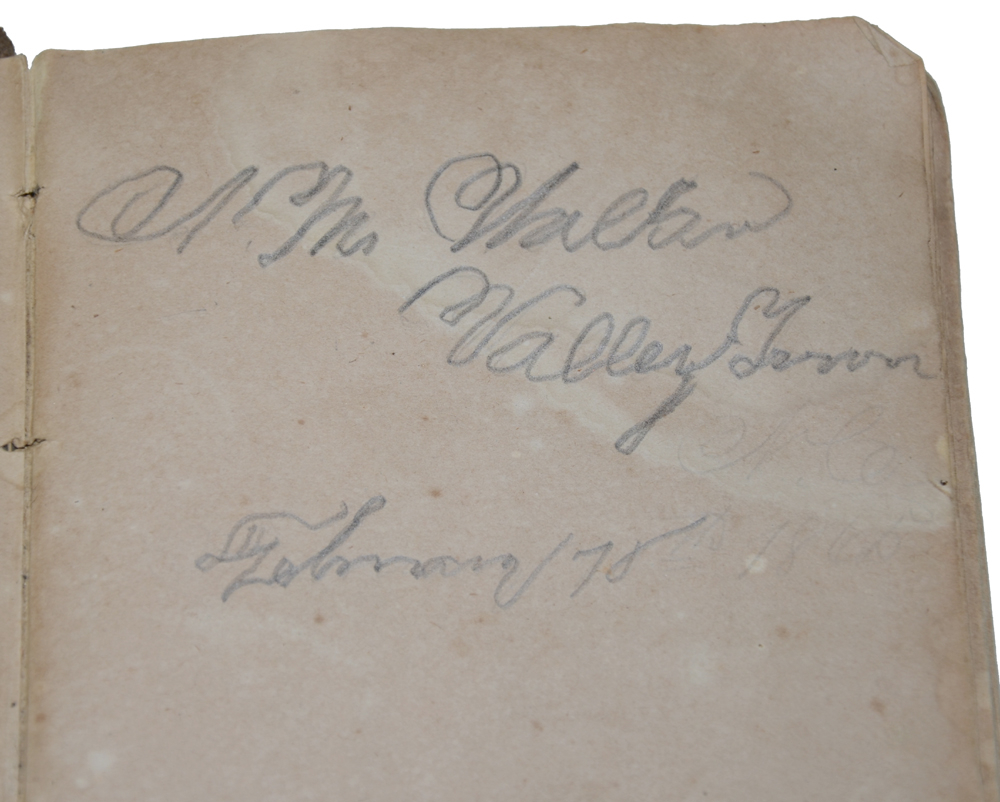 N. M. Walker
Valley Town
N. C.
February 18th 18